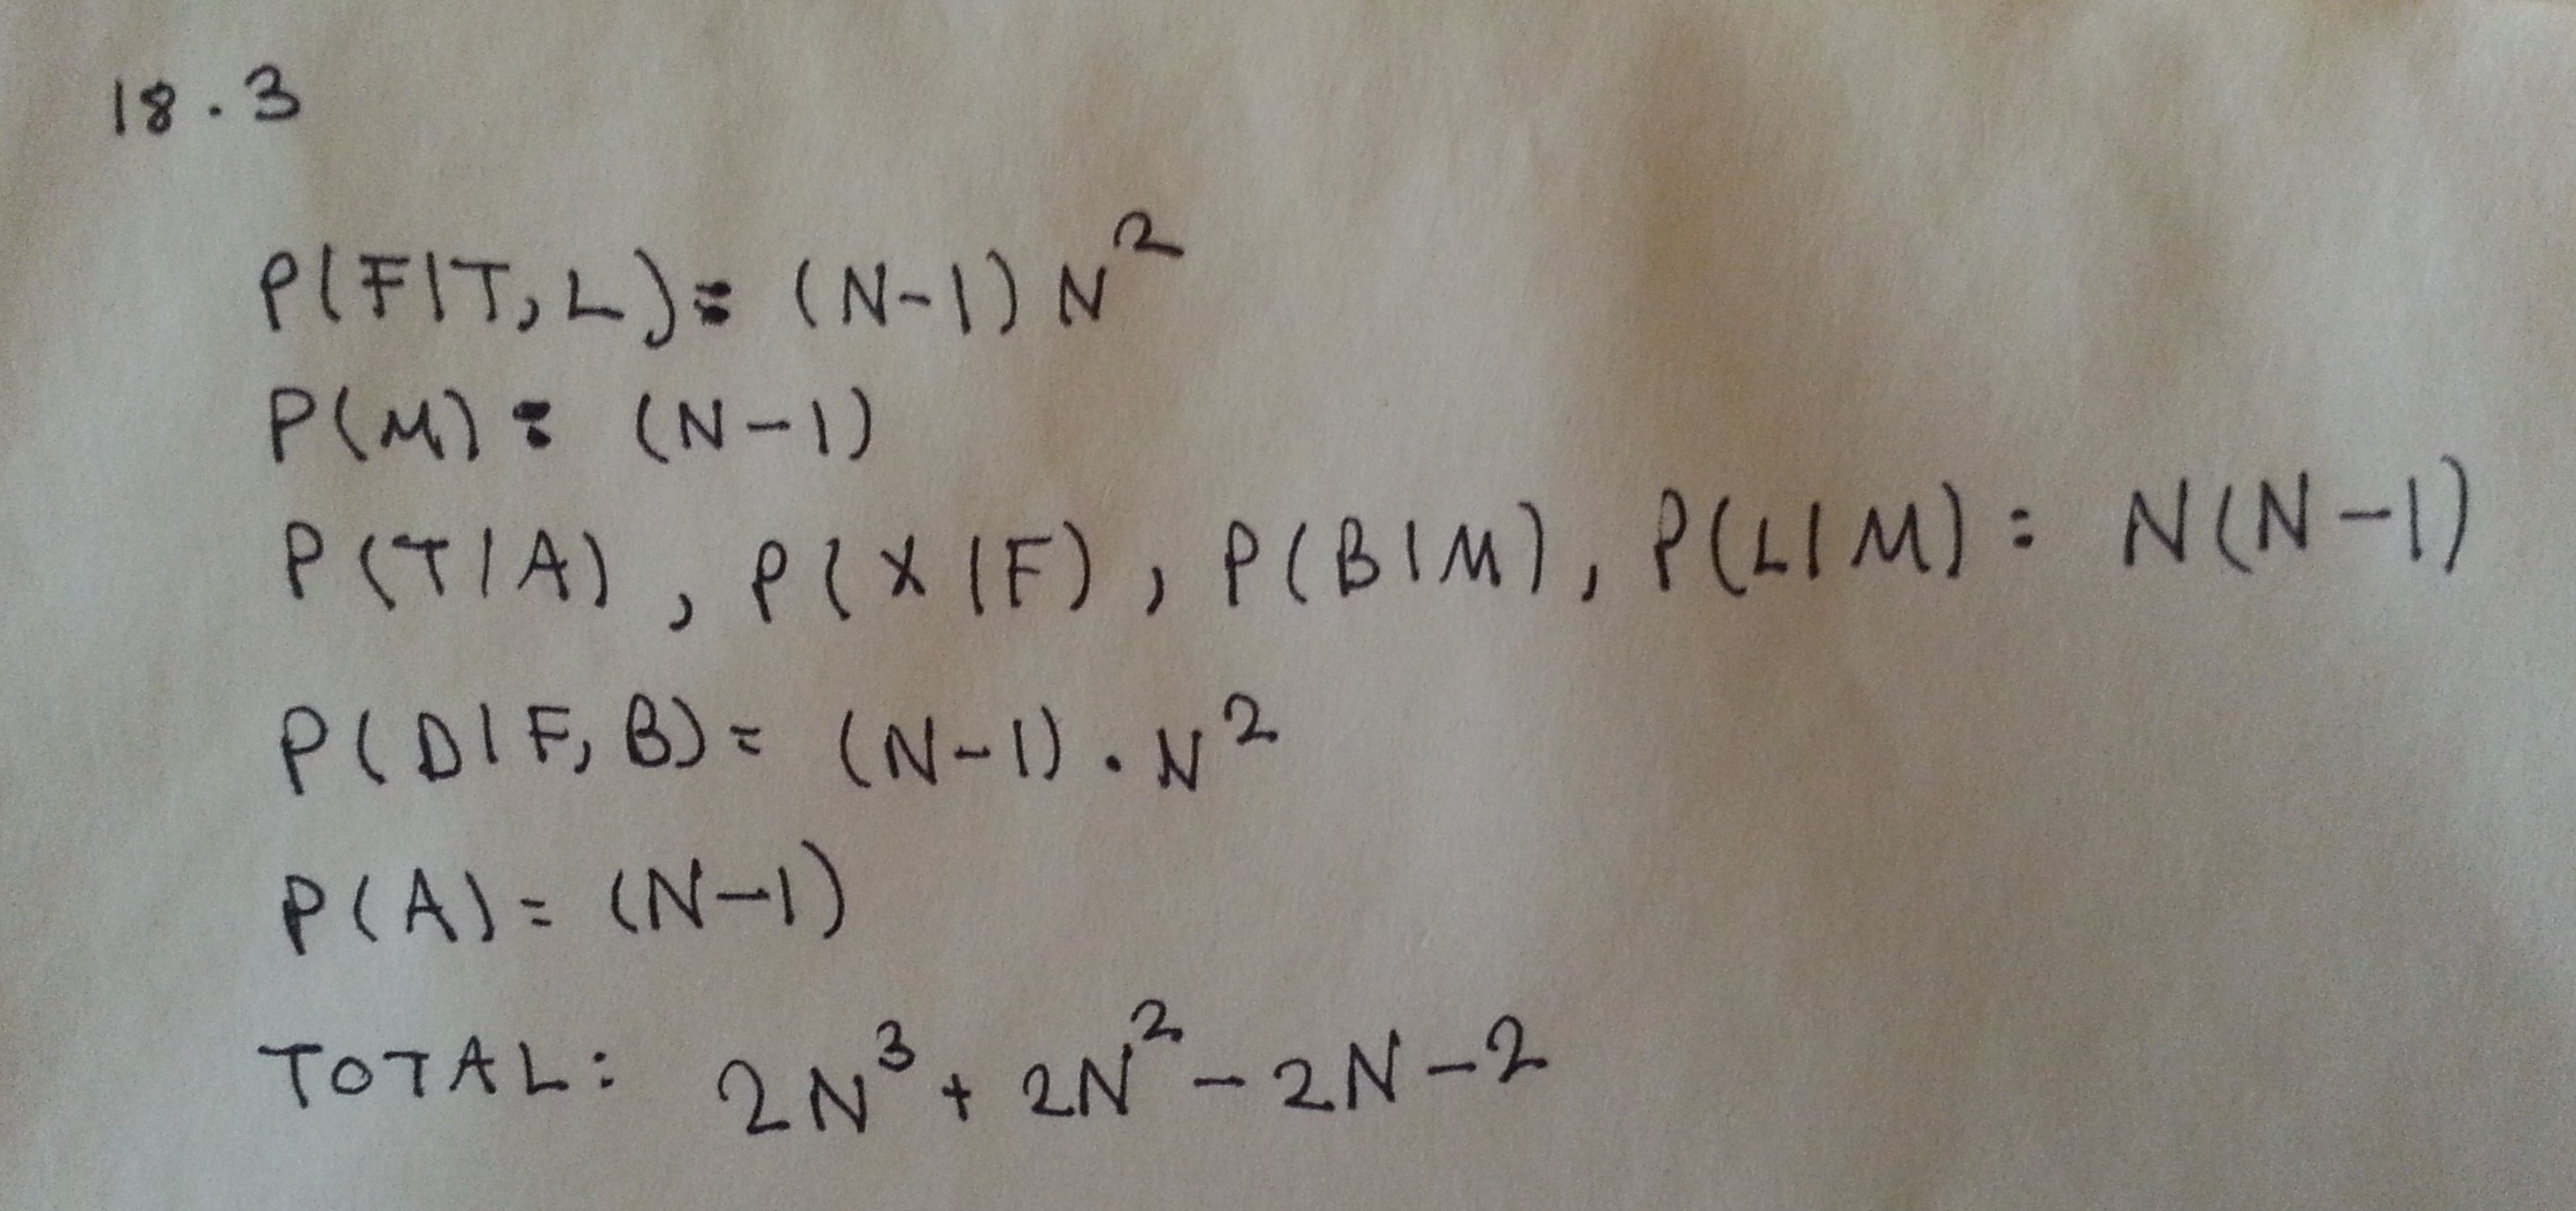 18.3
P(F|T,L) = (N-1)N²
P(M) = (N-1)
P(T|A), P(X|F), P(B|M), P(L|M) = N(N-1)
P(D|F,B) = (N-1).N²
P(A) = (N-1)
TOTAL: 2N³ + 2N² - 2N - 2